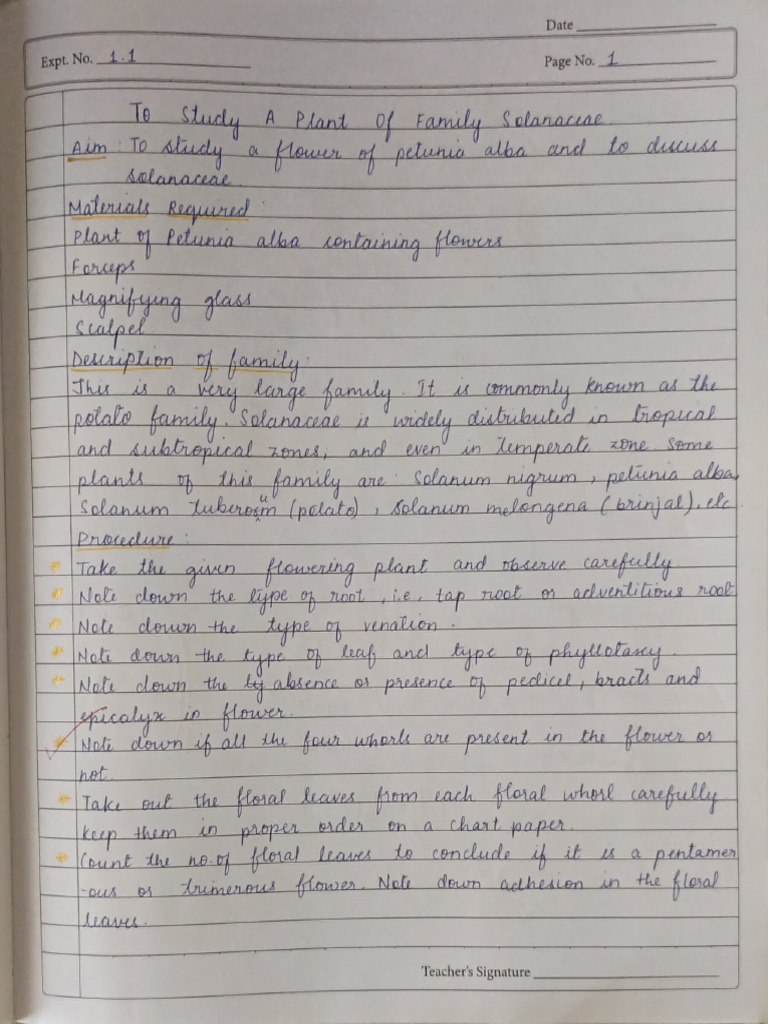 Date
Expt. No. 1.1 Page No. 1
To Study A Plant Of Family Solanaceae
Aim : To study a flower of petunia alba and to discuss
solanaceae.
Materials Required :
Plant of Petunia alba containing flowers
Forceps
Magnifying glass
Scalpel
Description of family :
This is a very large family. It is commonly known as the
potato family. Solanaceae is widely distributed in tropical
and subtropical zones, and even in temperate zone. Some
plants of this family are : Solanum nigrum, petunia alba,
Solanum tuberosum (potato), Solanum melongena (brinjal), etc
Procedure :
Take the given flowering plant and observe carefully.
Note down the type of root, i.e, tap root or adventitious root
Note down the type of venation.
Note down the type of leaf and type of phyllotaxy.
Note down the ty absence or presence of pedicel, bracts and
epicalyx in flower.
Note down if all the four whorls are present in the flower or
not.
Take out the floral leaves from each floral whorl carefully
keep them in proper order on a chart paper.
Count the no. of floral leaves to conclude if it is a pentamer
-ous or trimerous flower. Note down adhesion in the floral
leaves.
Teacher's Signature